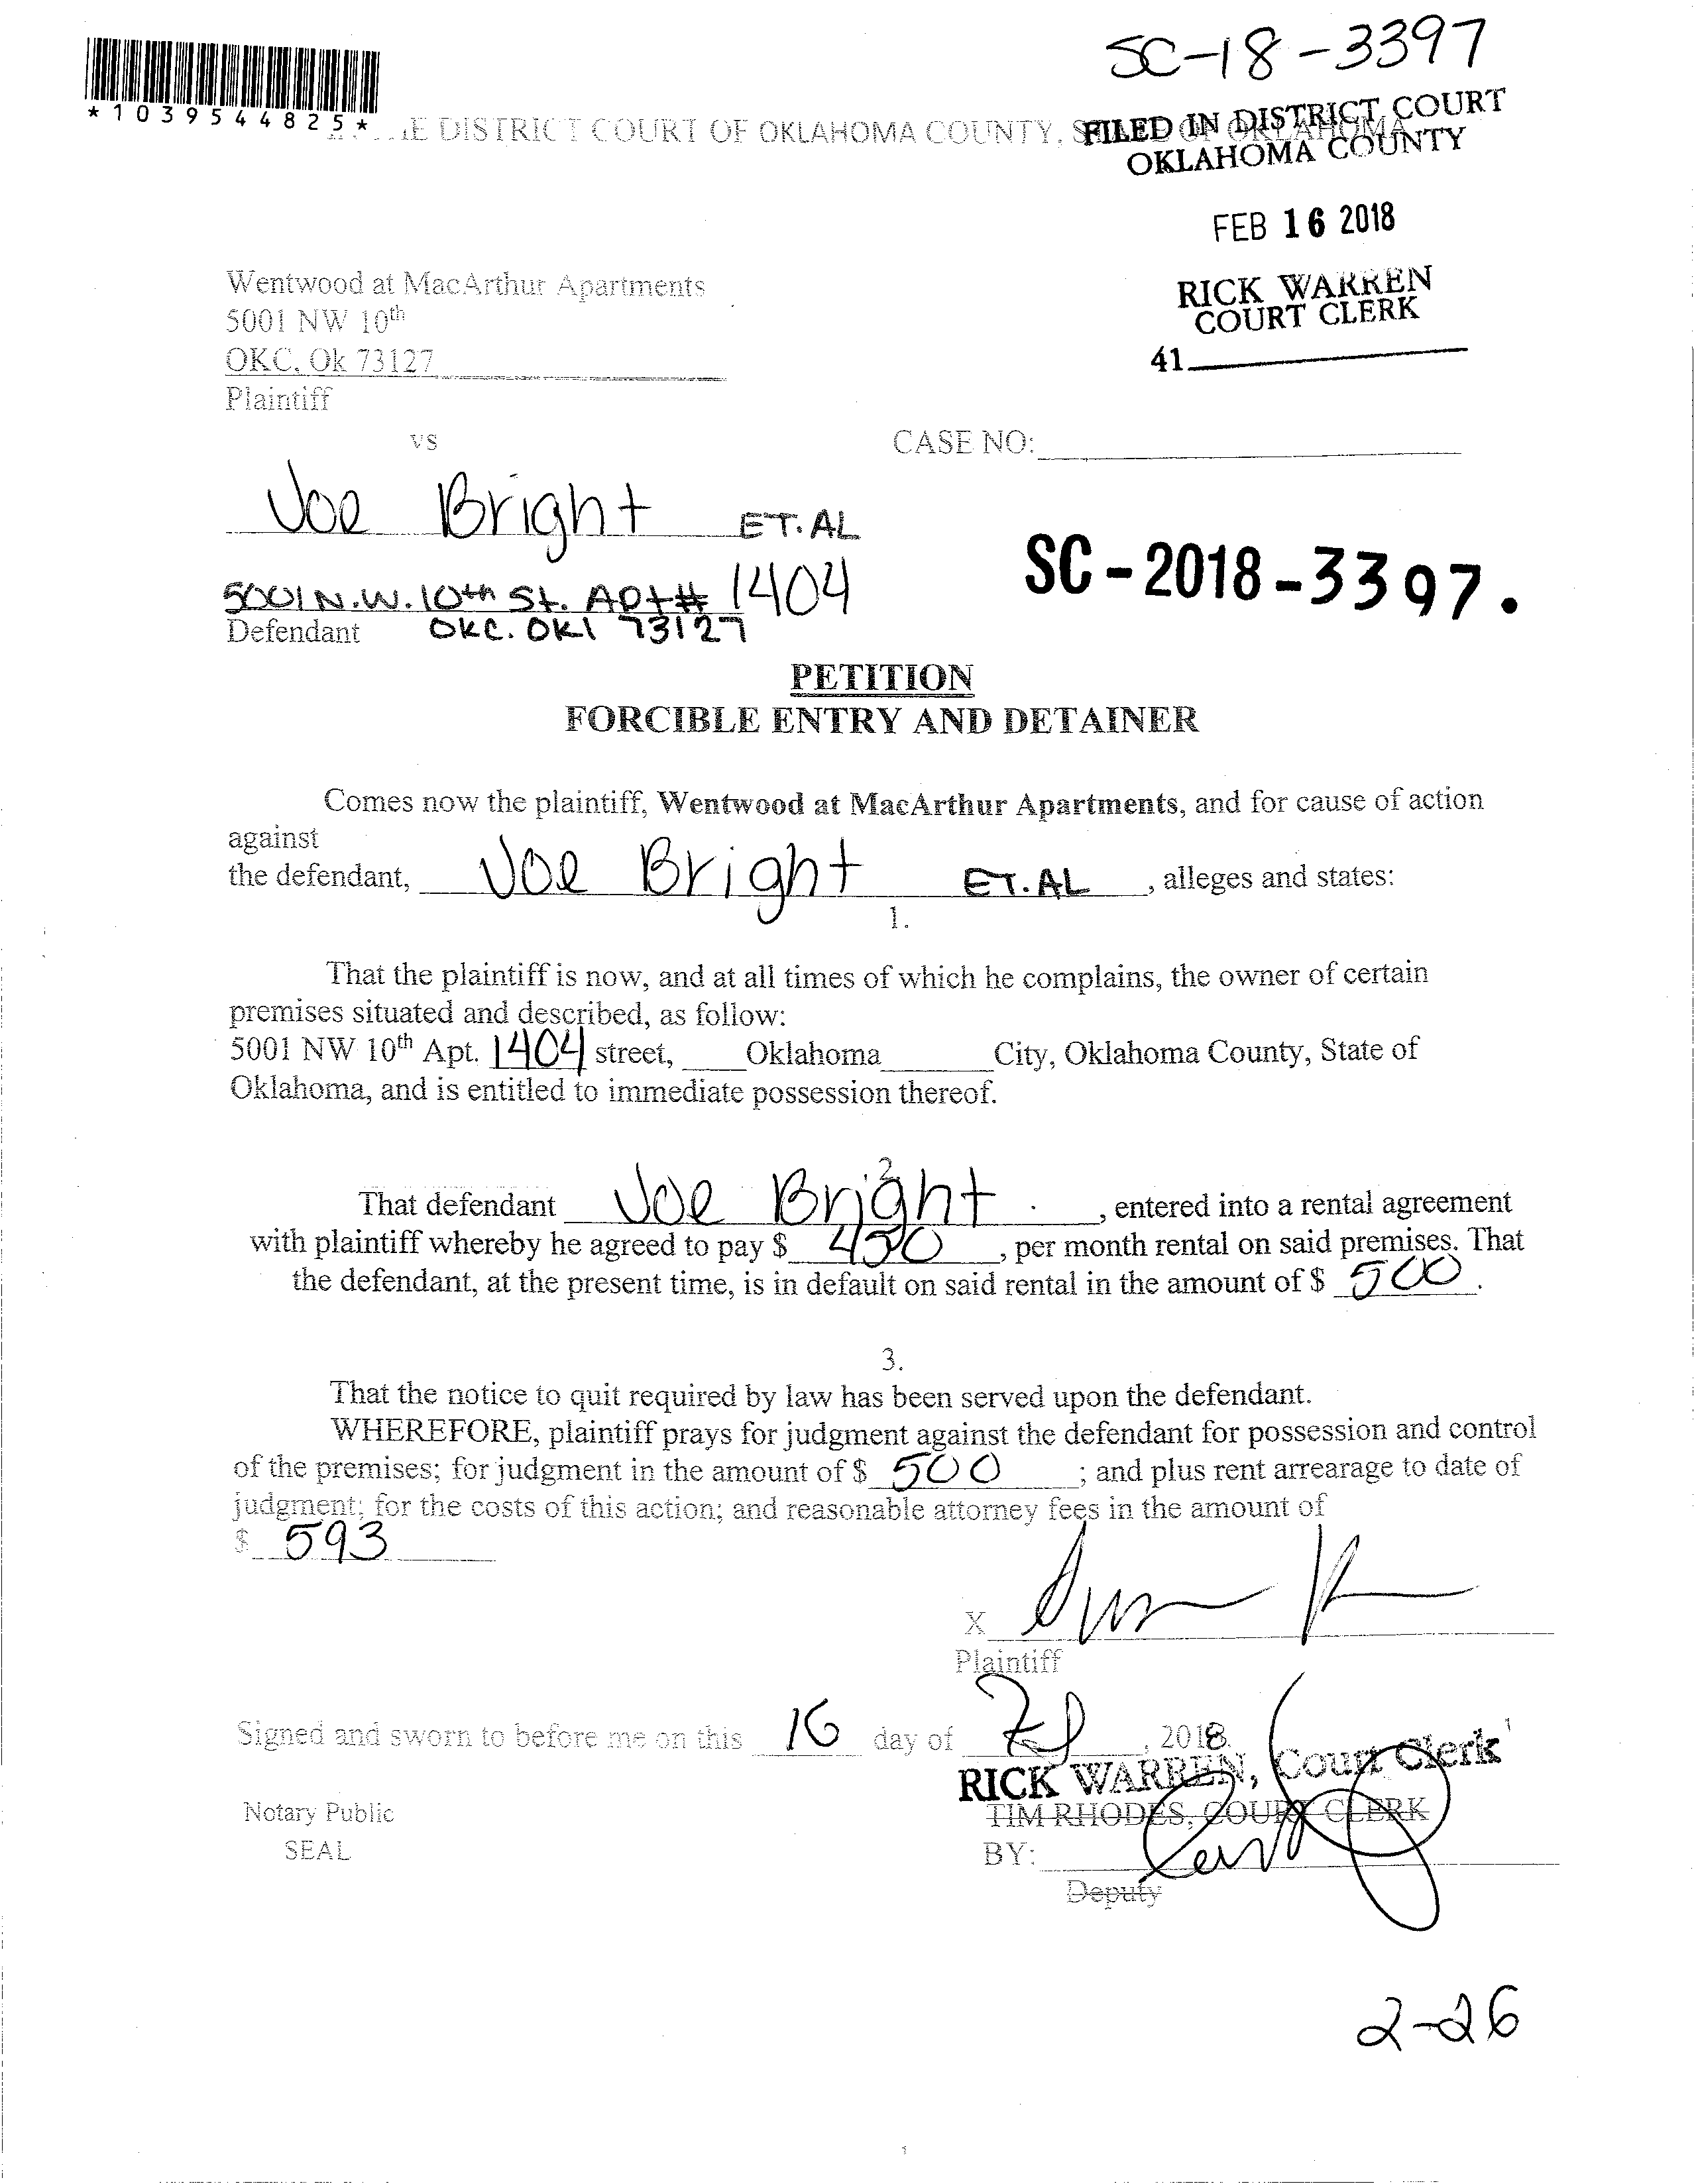 SC-18-3397
*1039544825*
E DISTRICT COURT OF OKLAHOMA COUNTY, STATE OF OKLAHOMA
FILED IN DISTRICT COURT
OKLAHOMA COUNTY
FEB 16 2018
RICK WARREN
COURT CLERK
41
Wentwood at MacArthur Apartments
5001 NW 10th
OKC, Ok 73127
Plaintiff
vs
CASE NO:
Joe Bright ET.AL
SC-2018-3397.
5001 N.W. 10th St. Apt# 1404
Defendant OKC. OKl 73127
PETITION
FORCIBLE ENTRY AND DETAINER
Comes now the plaintiff, Wentwood at MacArthur Apartments, and for cause of action
against
the defendant, Joe Bright ET.AL , alleges and states:
1.
That the plaintiff is now, and at all times of which he complains, the owner of certain
premises situated and described, as follow:
5001 NW 10th Apt. 1404 street, Oklahoma City, Oklahoma County, State of
Oklahoma, and is entitled to immediate possession thereof.
2.
That defendant Joe Bright , entered into a rental agreement
with plaintiff whereby he agreed to pay $ , per month rental on said premises. That
the defendant, at the present time, is in default on said rental in the amount of $ 500.
3.
That the notice to quit required by law has been served upon the defendant.
WHEREFORE, plaintiff prays for judgment against the defendant for possession and control
of the premises; for judgment in the amount of $ 500 ; and plus rent arrearage to date of
judgment; for the costs of this action; and reasonable attorney fees in the amount of
$ 593
X
Plaintiff
Signed and sworn to before me on this 16 day of , 2018.
RICK WARREN, Court Clerk
TIM RHODES, COURT CLERK
Notary Public
SEAL
BY:
Deputy
2-26